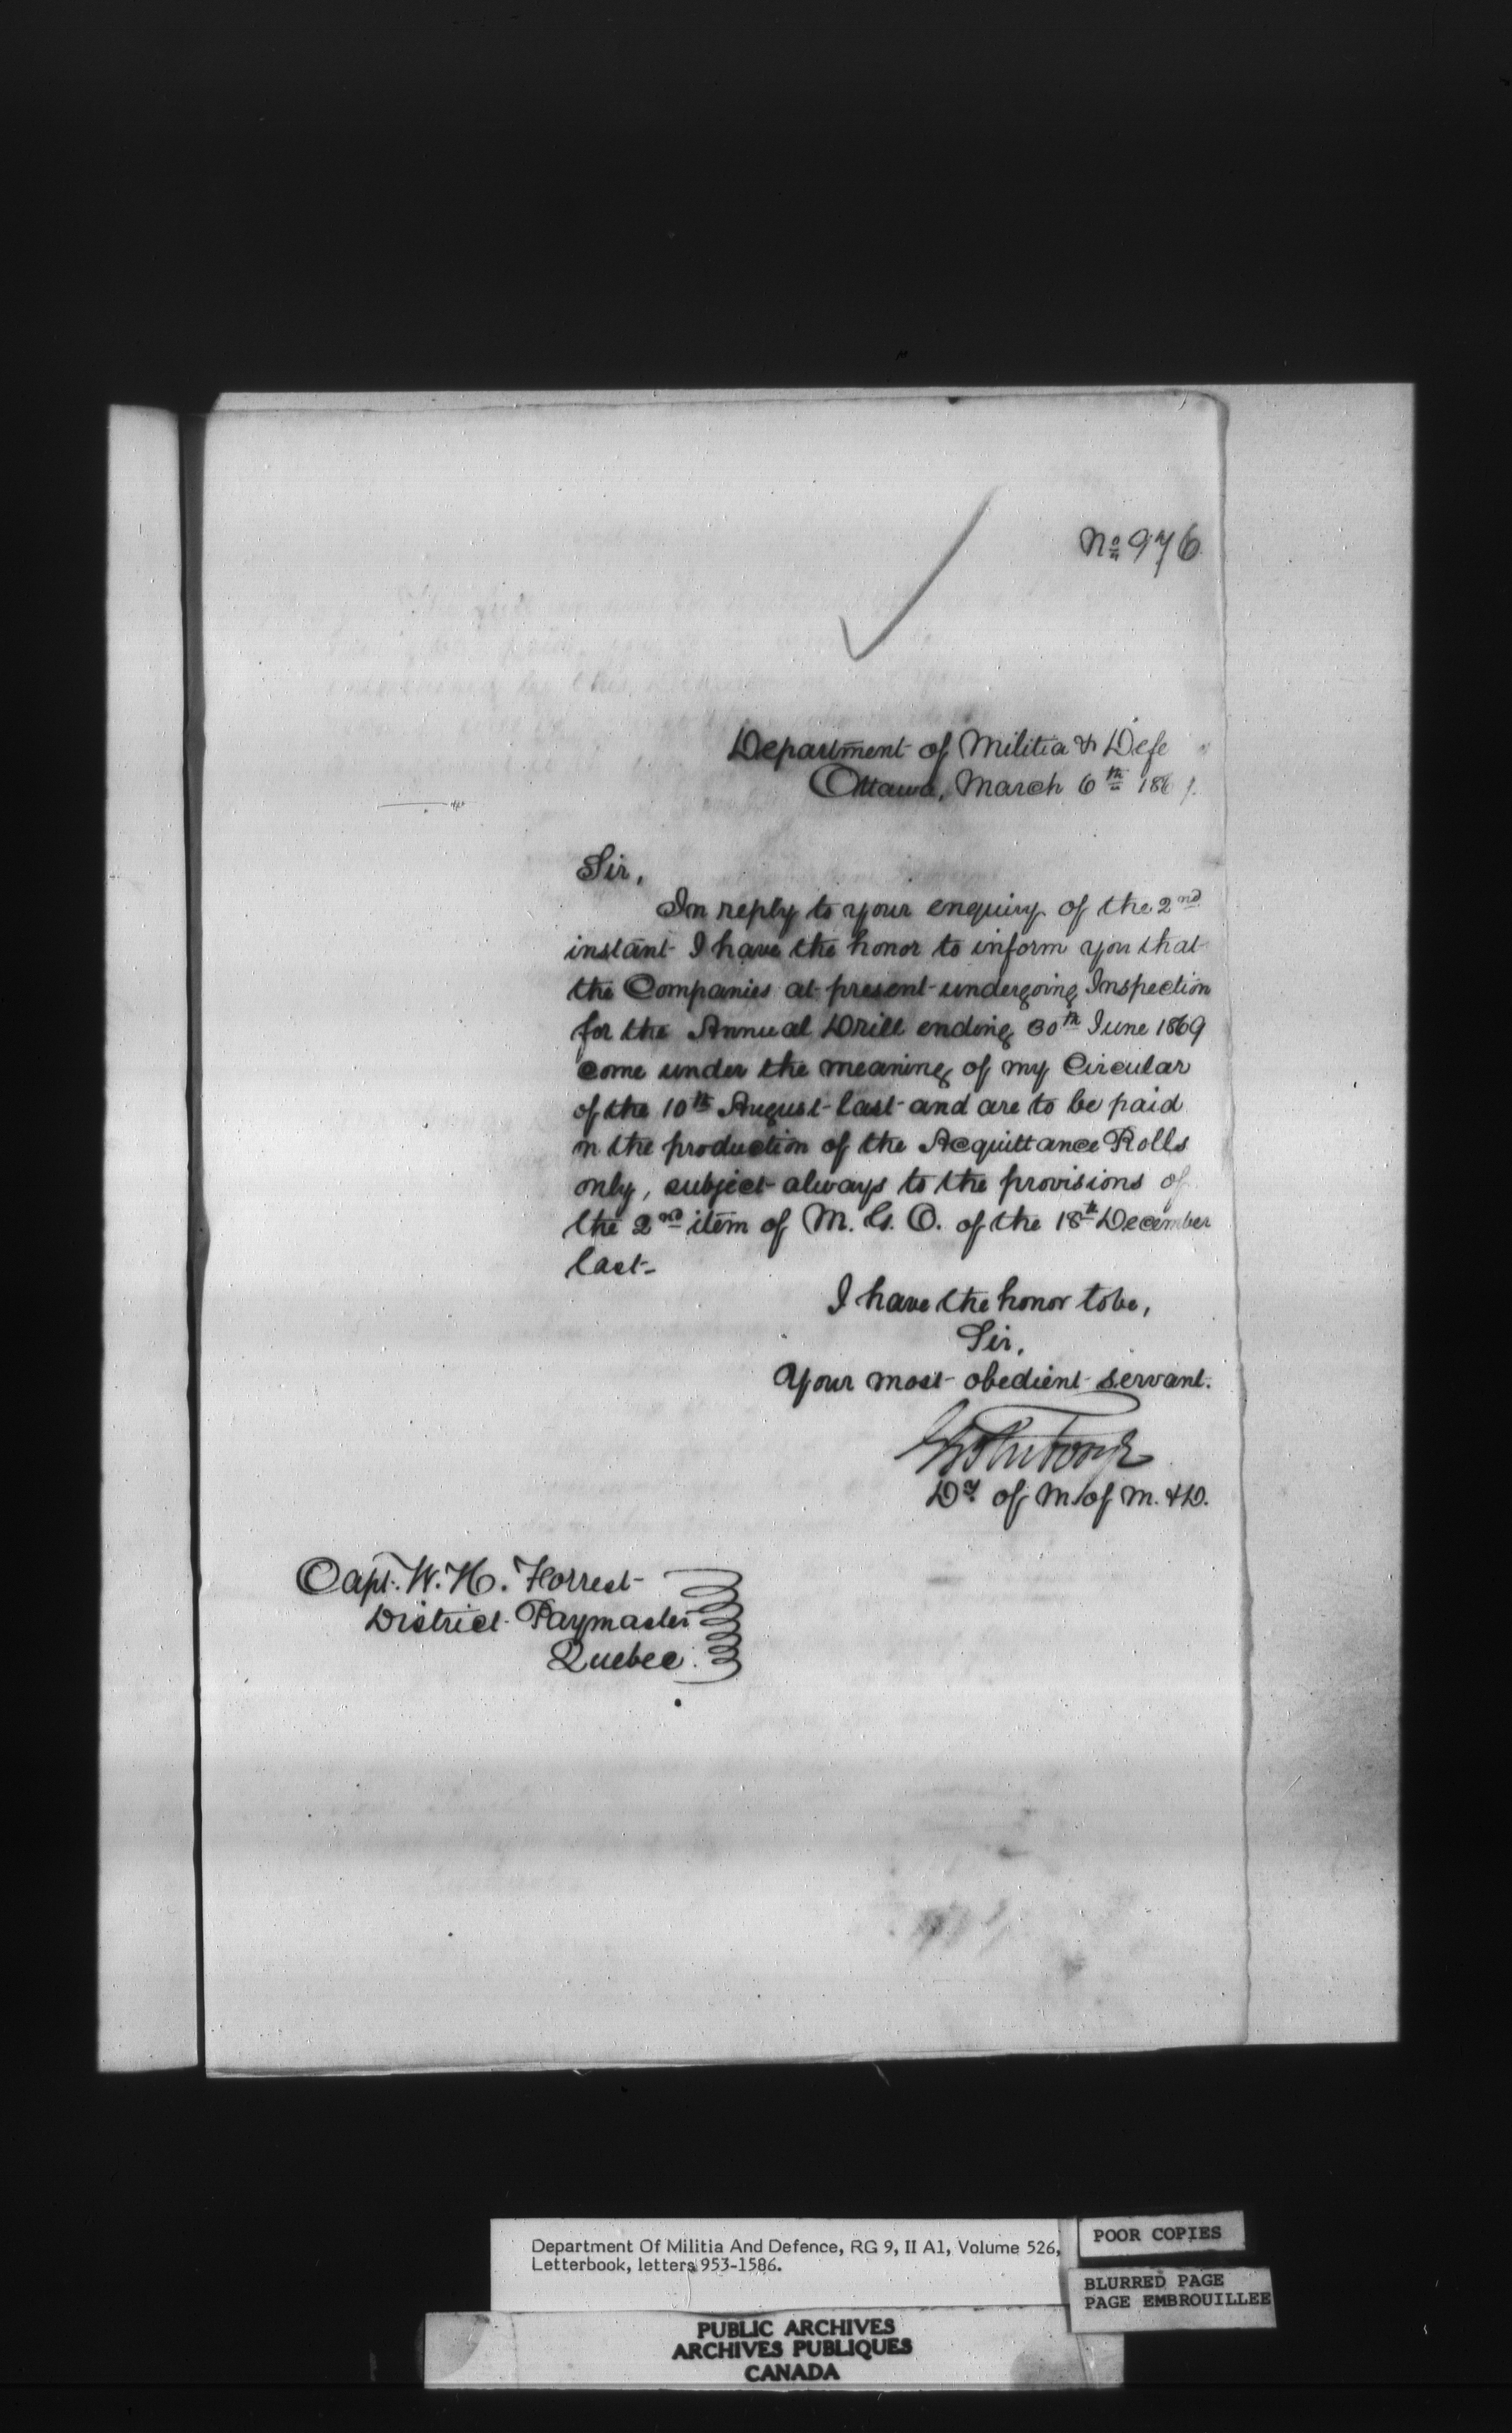 No 976
Department of Militia & Defe
Ottawa, March 6th 186
Sir,
In reply to your enquiry of the 2nd
instant I have the honor to inform you that
the Companies at present undergoing Inspection
for the Annual Drill ending 30th June 1869
come under the meaning of my Circular
of the 10th August last and are to be paid
on the production of the Acquittance Rolls
only, subject always to the provisions of
the 2nd item of M. G. O. of the 18th December
last.
I have the honor to be,
Sir,
Your most obedient servant.
Dy. of M. of M. & D.
Capt. W. H. Forrest
District Paymaster
Quebec.
Department Of Militia And Defence, RG 9, II A1, Volume 526,
Letterbook, letters 953-1586.
POOR COPIES
BLURRED PAGE
PAGE EMBROUILLEE
PUBLIC ARCHIVES
ARCHIVES PUBLIQUES
CANADA